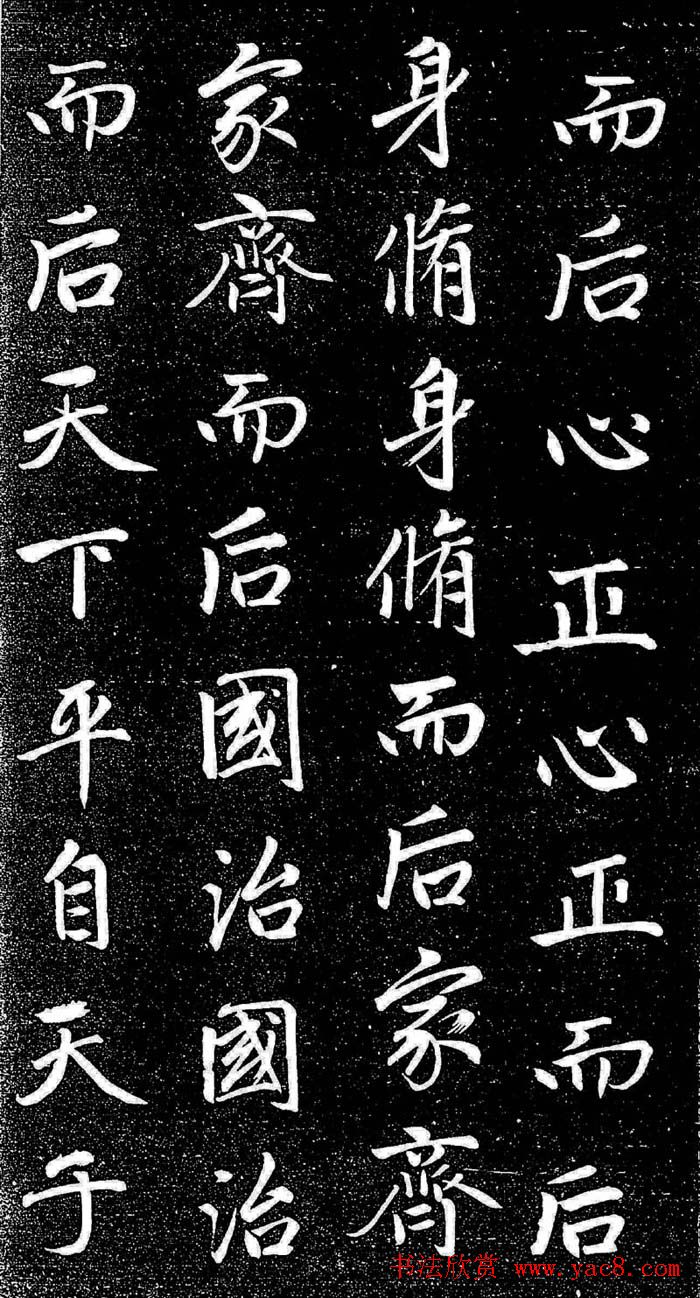 而后心正心正而后
身脩身脩而后家齊
家齊而后國治國治
而后天下平自天子
书法欣赏 www.yac8.com